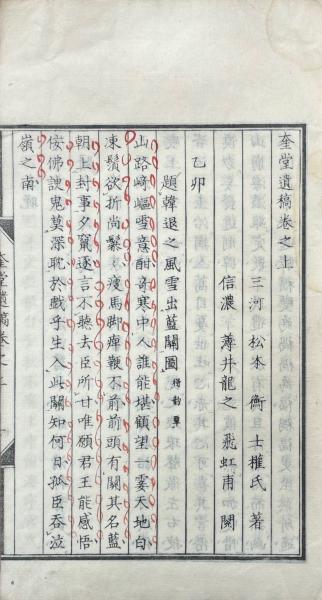 奎堂遺稿卷之上
三河 松本衡士權氏 著
信濃 薄井龍之飛虹甫 閱
乙卯
題韓退之風雪出藍關圖
山路崎嶇雪意酣奇寒中人誰能堪顧望寥天地白
凍鬚欲折尚鬖不瘦馬脚痺鞭不前前頭有關其名藍
朝上封事夕竄逐言不聽去臣所甘唯願君王能感悟
佞佛諛鬼莫深耽於戲乎生入此關知何日孤臣吞泣
嶺之南
奎堂遺稿卷之上